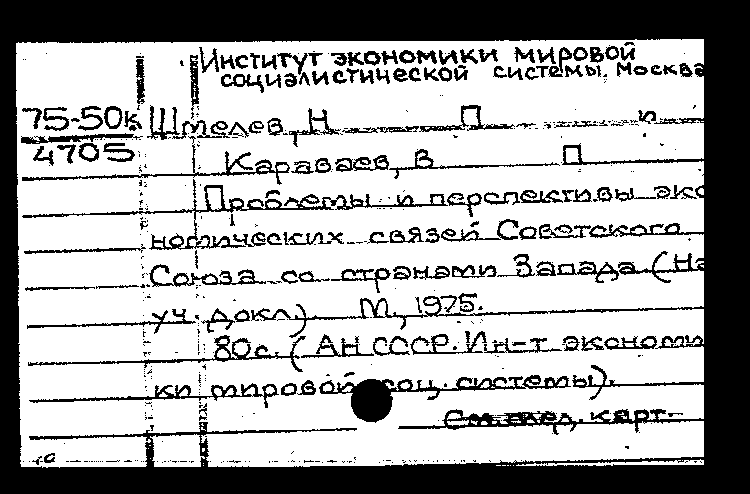 Институт экономики мировой
социалистической системы. Москва
75-50к Шмелев, Н П и
4705
Караваев, В П
Проблемы и перспективы эко
номических связей Советского
Союза со странами Запада. (На
уч. докл). М., 1975.
80с. (АН СССР. Ин-т экономи
ки мировой соц. системы).
См. след. карт.